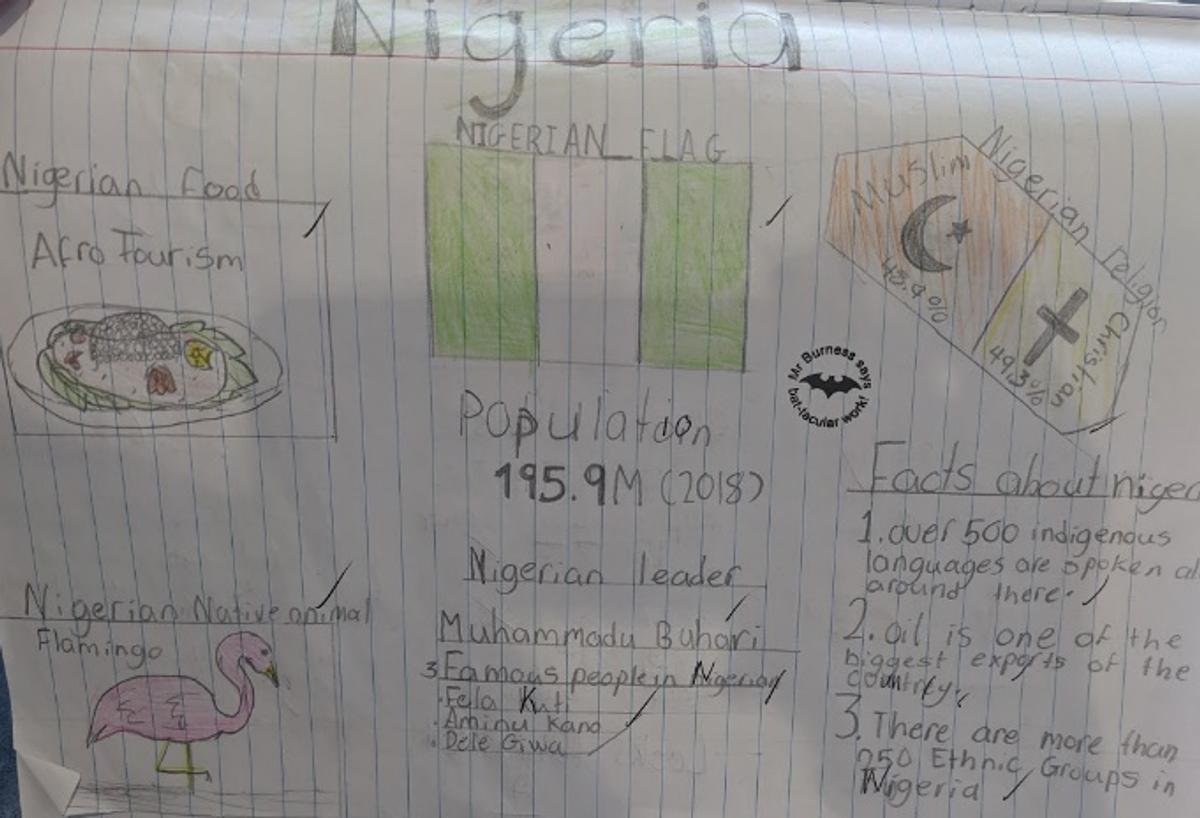 Nigeria
Nigerian food
Afro Tourism
NIGERIAN FLAG
Nigerian religion
Muslim
Christian
49.3%
Mr Burness says
bat-tacular work!
Population
195.9M (2018)
Nigerian leader
Muhammadu Buhari
3 Famous people in Nigerian
. Fela Kuti
. Aminu Kano
. Dele Giwa
Nigerian Native animal
Flamingo
Facts about niger
1. over 500 indigenous
languages are spoken al
around there.
2. oil is one of the
biggest exports of the
country.
3. There are more than
250 Ethnic Groups in
Nigeria